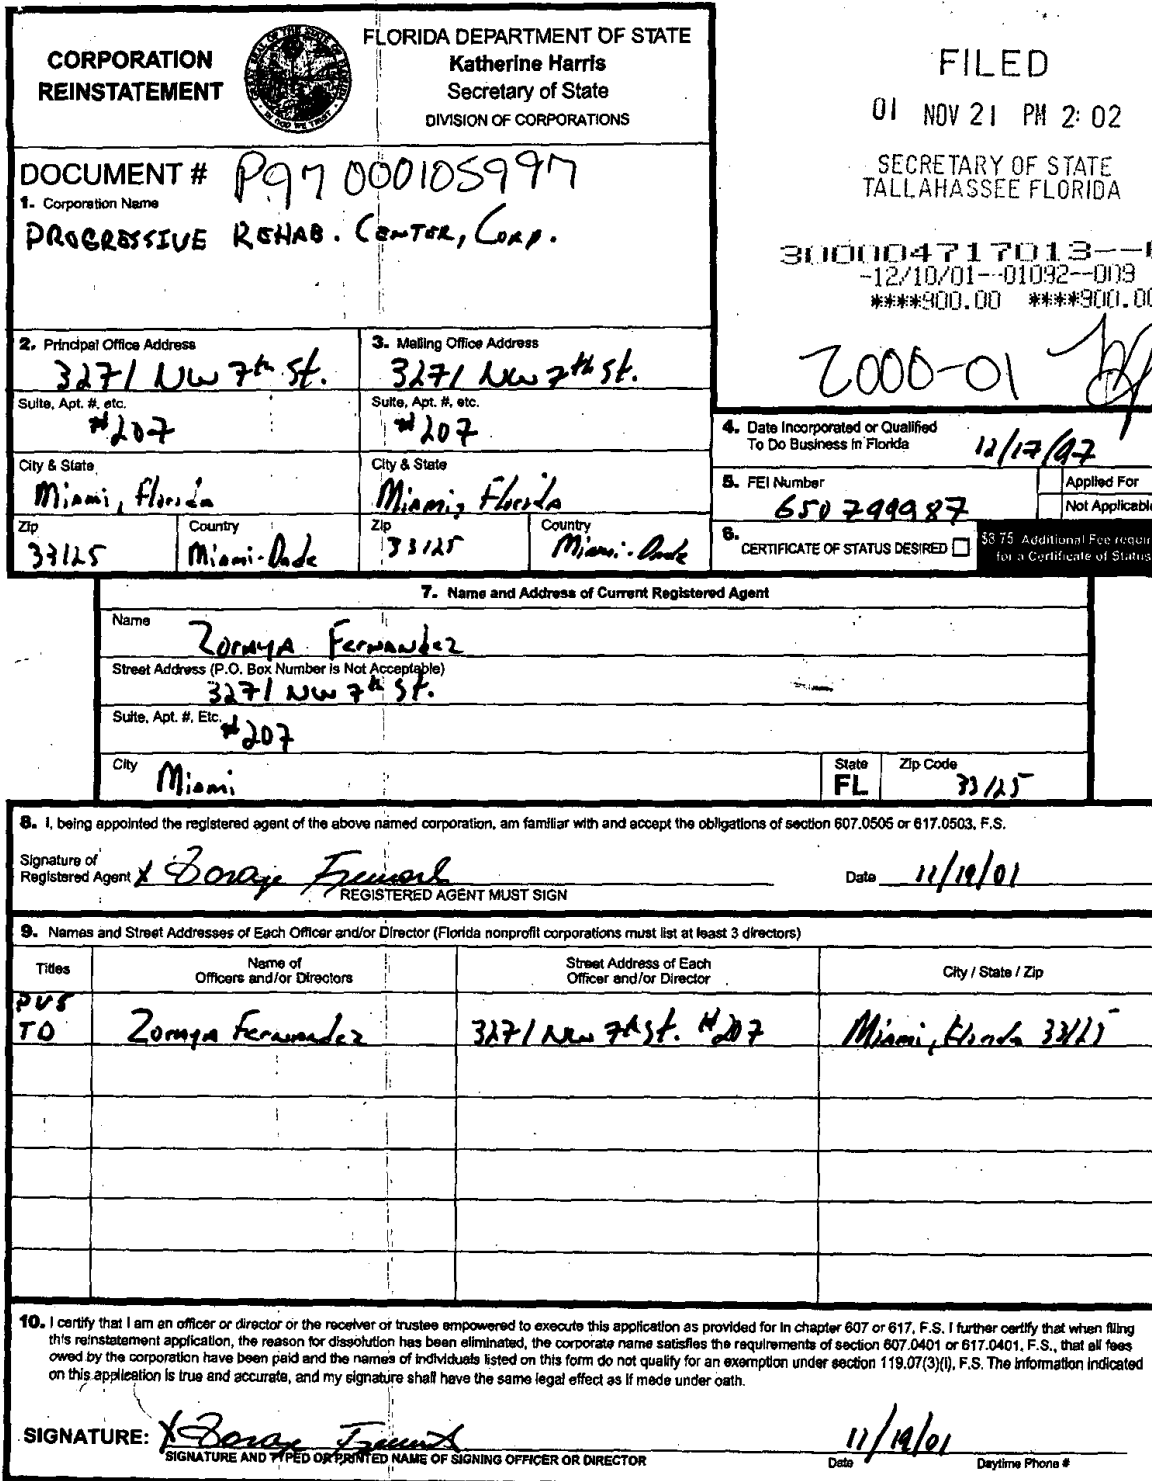 CORPORATION
REINSTATEMENT
FLORIDA DEPARTMENT OF STATE
Katherine Harris
Secretary of State
DIVISION OF CORPORATIONS
FILED
01 NOV 21 PM 2:02
SECRETARY OF STATE
TALLAHASSEE FLORIDA
DOCUMENT # P97000105997
1. Corporation Name
PROGRESSIVE REHAB. CENTER, CORP.
300004717013--
-12/10/01--01092--009
****900.00 ****900.00
2000-01
2. Principal Office Address
3271 NW 7th St.
3. Mailing Office Address
3271 NW 7th St.
Suite, Apt. #, etc.
#207
Suite, Apt. #, etc.
#207
City & State
Miami, Florida
City & State
Miami, Florida
Zip
33125
Country
Miami-Dade
Zip
33125
Country
Miami-Dade
4. Date Incorporated or Qualified
To Do Business in Florida 12/17/97
5. FEI Number
650799987
Applied For
Not Applicable
6. CERTIFICATE OF STATUS DESIRED
$8.75 Additional Fee requir
for a Certificate of Status
7. Name and Address of Current Registered Agent
Name
Zoraya Fernandez
Street Address (P.O. Box Number is Not Acceptable)
3271 NW 7th St.
Suite, Apt. #, Etc.
#207
City
Miami
State
FL
Zip Code
33125
8. I, being appointed the registered agent of the above named corporation, am familiar with and accept the obligations of section 607.0505 or 617.0503, F.S.
Signature of
Registered Agent X
REGISTERED AGENT MUST SIGN
Date 11/19/01
9. Names and Street Addresses of Each Officer and/or Director (Florida nonprofit corporations must list at least 3 directors)
Titles
Name of
Officers and/or Directors
Street Address of Each
Officer and/or Director
City / State / Zip
PVS
TD Zoraya Fernandez 3271 NW 7th St. #207 Miami, Florida 33125
10. I certify that I am an officer or director or the receiver or trustee empowered to execute this application as provided for in chapter 607 or 617, F.S. I further certify that when filing
this reinstatement application, the reason for dissolution has been eliminated, the corporate name satisfies the requirements of section 607.0401 or 617.0401, F.S., that all fees
owed by the corporation have been paid and the names of individuals listed on this form do not qualify for an exemption under section 119.07(3)(i), F.S. The information indicated
on this application is true and accurate, and my signature shall have the same legal effect as if made under oath.
SIGNATURE: X
SIGNATURE AND TYPED OR PRINTED NAME OF SIGNING OFFICER OR DIRECTOR
11/19/01
Date
Daytime Phone #